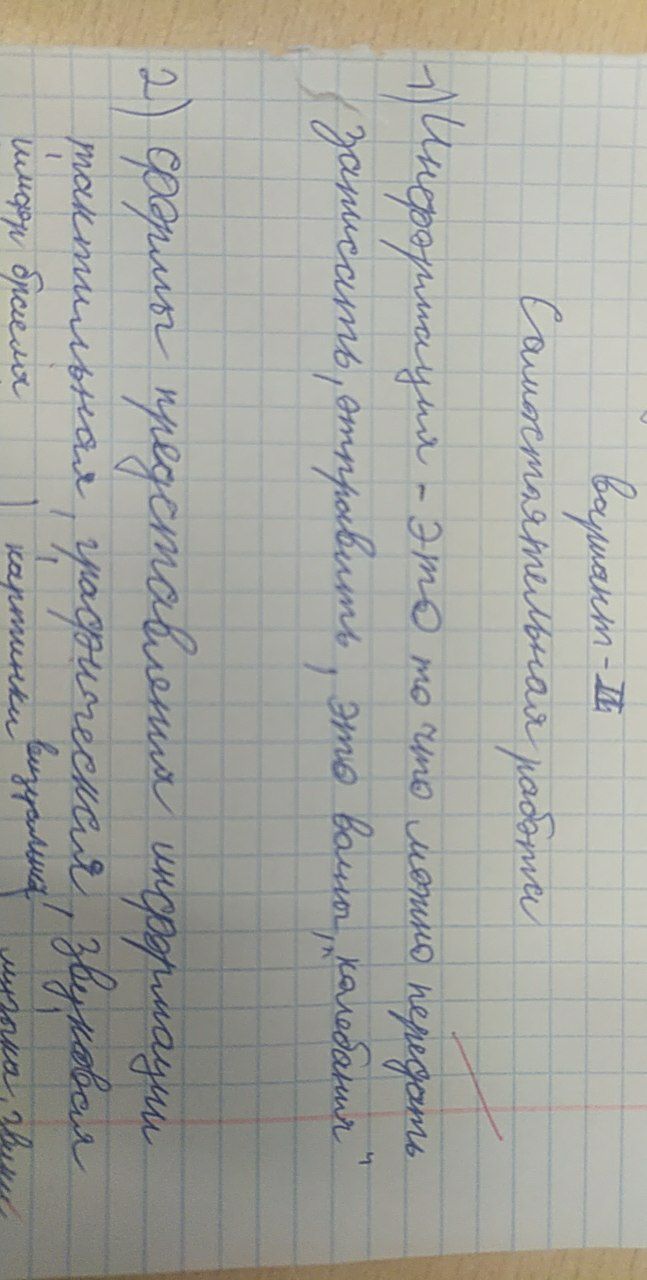 вариант - II
Самостоятельная работа
1) Информация - это то что можно передать
записать, отправить, это волны, "колебания"
2) формы представления информации
тактильная, графическая, звуковая
визуальная
шифр браеля картинки музыка, звуки